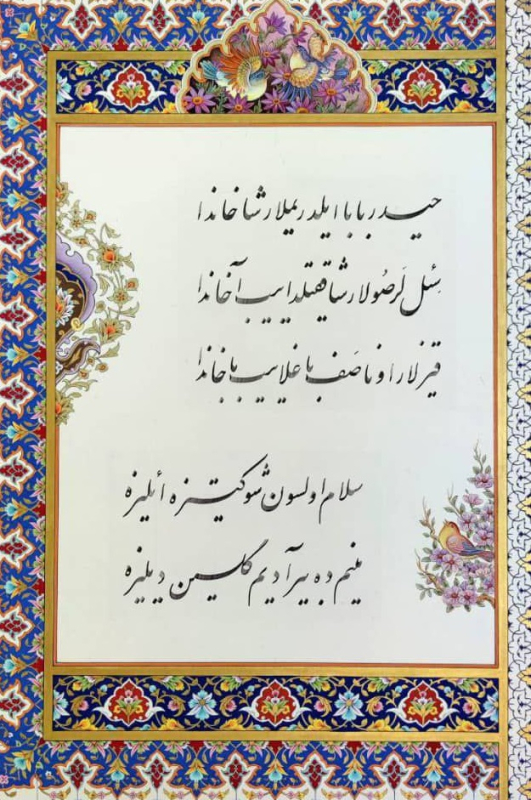 حیدر بابا ایلدریملار شاخاندا
سئل لَر صُولار شاققیلداییب آخاندا
قیزلار اونا صَف باغلاییب باخاندا
سلام اولسون شوکتیزه أئلیزه
منیم ده بیر آدیم گلسین دیلیزه